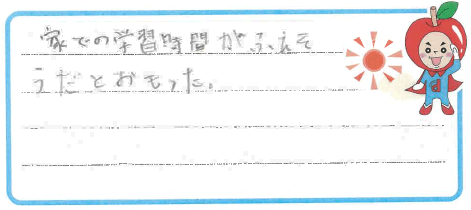 家での学習時間がふえそ
うだとおもった。
d